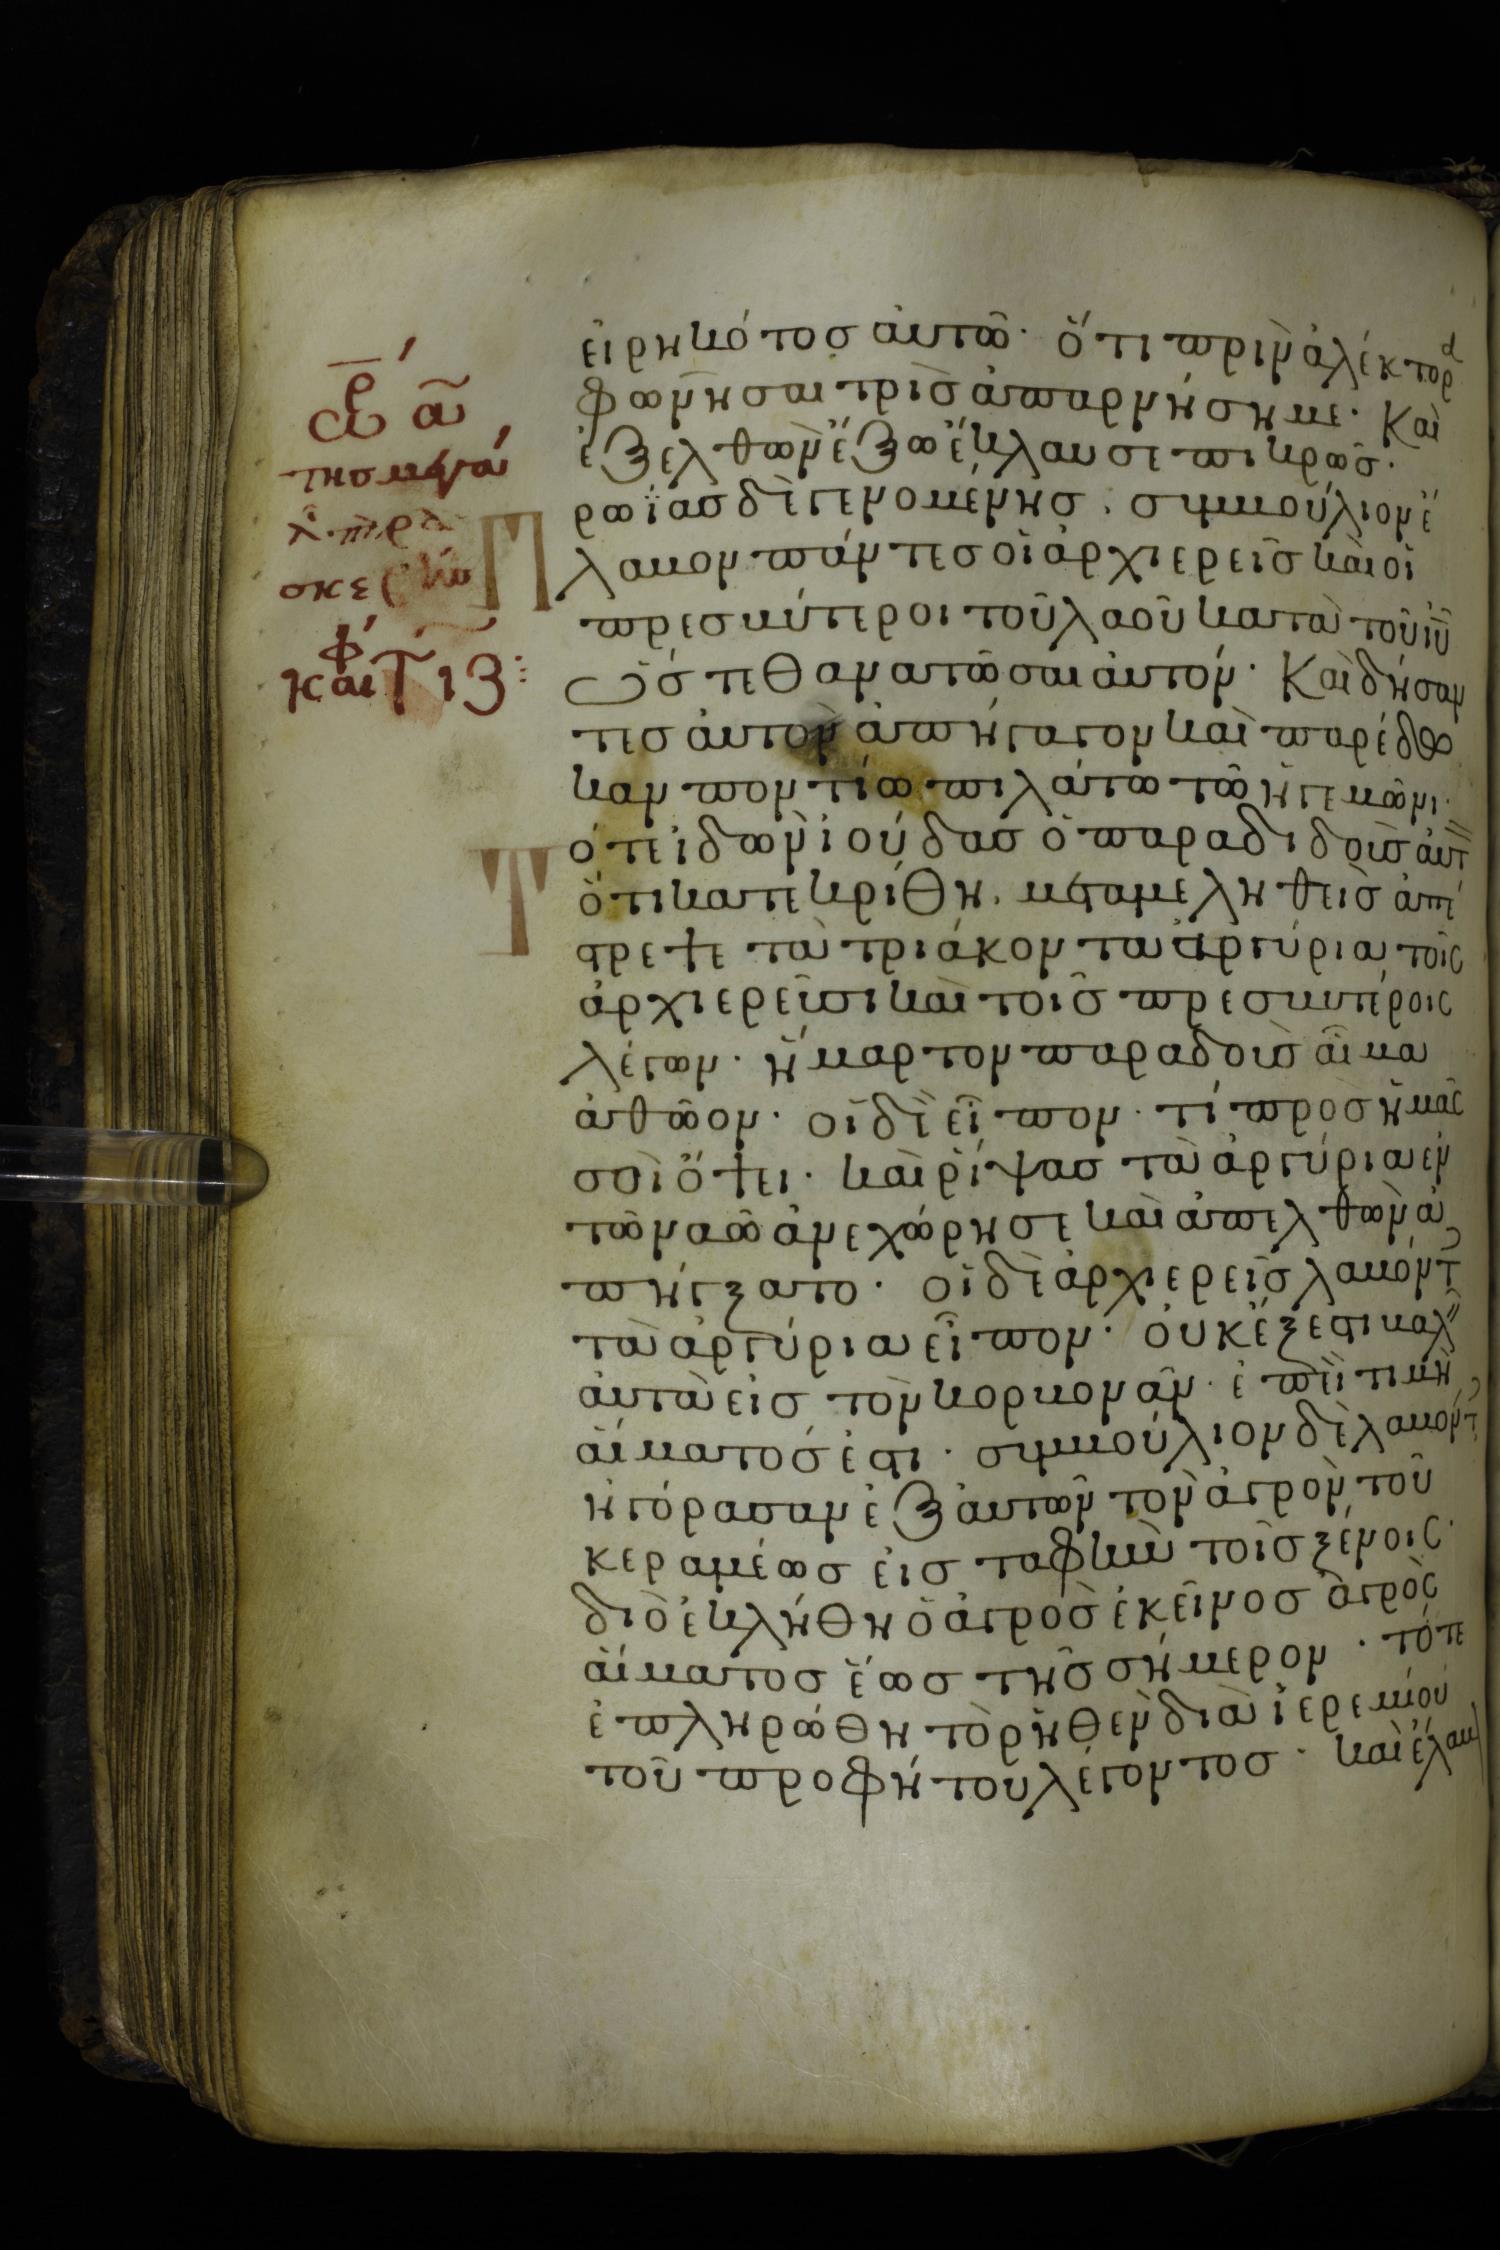 ὥρ ά
της μεγάλ
σκε
και
εἰρηκότος αὐτῶ· ὅτι πρὶν ἀλέκτορα
φωνῆσαι τρὶς ἀπαρνήση με· Καὶ
ἐξελθὼν ἔξω ἔκλαυσε πικρῶς·
Πρωΐας δὲ γενομένης· συμβούλιον ἔ
λαβον πάντες οἱ ἀρχιερεῖς καὶ οἱ
πρεσβύτεροι τοῦ λαοῦ κατὰ τοῦ ιυ
ὥστε θανατῶσαι αὐτόν· Καὶ δήσαν
τες αὐτὸν ἀπήγαγον καὶ παρέδω
καν ποντίω πιλάτω τῶ ἡγεμῶνι·
Τότε ἰδὼν ἰούδας ὁ παραδιδοὺς αὐτ
ὅτι κατεκρίθη· μεταμεληθεὶς ἀπέ
στρεψε τὰ τριάκοντα ἀργύρια τοῖς
ἀρχιερεῦσι καὶ τοῖς πρεσβυτέροις
λέγων· ἥμαρτον παραδοὺς αἷμα
ἀθῶον· οἱ δὲ εἶπον· τί πρὸς ἡμᾶς
σοὶ ὄψει· καὶ ῥίψας τὰ ἀργύρια ἐν
τῶ ναῶ ἀνεχώρησε καὶ ἀπελθὼν ἀ
πήγξατο· οἱ δὲ ἀρχιερεῖς λαβόντ
τὰ ἀργύρια εἶπον· οὐκ ἔξεστι βαλ
αὐτὰ εἰς τὸν κορβονᾶν· ἐπεὶ τιμὴ
αἵματός ἐστι· συμβούλιον δὲ λαβόντ
ἠγόρασαν ἐξ αὐτῶν τὸν ἀγρὸν τοῦ
κεραμέως εἰς ταφὴν τοῖς ξένοις·
διὸ ἐκλήθη ὁ ἀγρὸς ἐκεῖνος ἀγρὸς
αἵματος ἕως τῆς σήμερον· τότε
ἐπληρώθη τὸ ῥηθὲν διὰ ἱερεμίου
τοῦ προφήτου λέγοντος· καὶ ἔλαβ